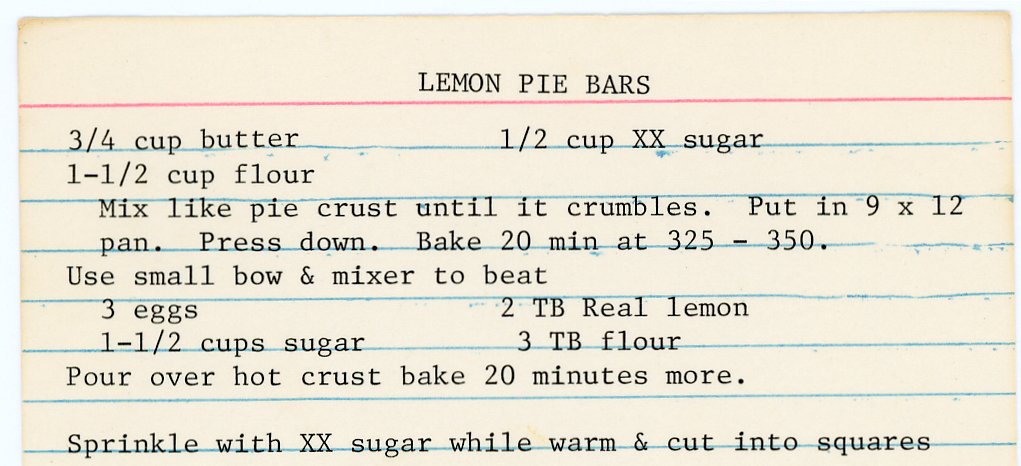 LEMON PIE BARS
3/4 cup butter 1/2 cup XX sugar
1-1/2 cup flour
Mix like pie crust until it crumbles. Put in 9 x 12
pan. Press down. Bake 20 min at 325 - 350.
Use small bow & mixer to beat
3 eggs 2 TB Real lemon
1-1/2 cups sugar 3 TB flour
Pour over hot crust bake 20 minutes more.
Sprinkle with XX sugar while warm & cut into squares